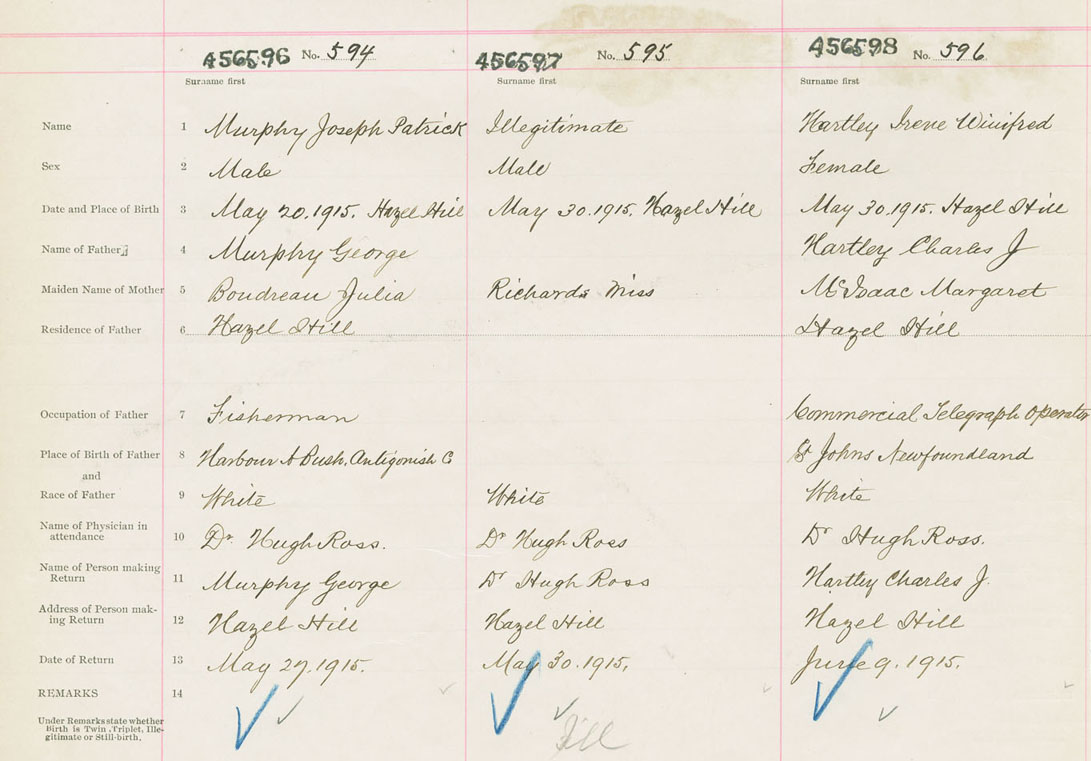 456596 No. 594 456597 No. 595 456598 No. 596
Surname first Surname first Surname first
Name 1 Murphy Joseph Patrick Illegitimate Hartley Irene Winifred
Sex 2 Male Male Female
Date and Place of Birth 3 May 20.1915. Hazel Hill May 30.1915. Hazel Hill May 30.1915. Hazel Hill
Name of Father 4 Murphy George Hartley Charles J
Maiden Name of Mother 5 Boudreau Julia Richards Miss McIsaac Margaret
Residence of Father 6 Hazel Hill Hazel Hill
Occupation of Father 7 Fisherman Commercial Telegraph Operator
Place of Birth of Father 8 Harbour A Bush, Antigonish C St Johns Newfoundland
and
Race of Father 9 White White White
Name of Physician in
attendance 10 Dr. Hugh Ross. Dr Hugh Ross Dr Hugh Ross.
Name of Person making
Return 11 Murphy George Dr Hugh Ross Hartley Charles J.
Address of Person mak-
ing Return 12 Hazel Hill Hazel Hill Hazel Hill
Date of Return 13 May 27.1915. May 30.1915. June 9.1915.
REMARKS 14
Under Remarks state whether
Birth is Twin, Triplet, Ille-
gitimate or Still-birth.
Ill